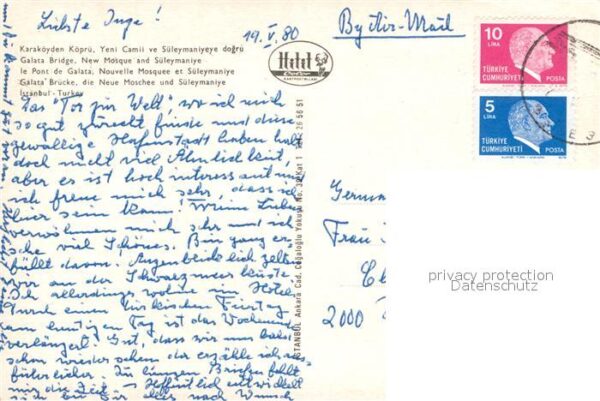 Liebste Inge!
19.V.80
By Air-Mail
10
LIRA
TÜRKİYE
CUMHURİYETİ
POSTA
5
LIRA
TÜRKİYE
CUMHURİYETİ
POSTA
Hitit
Karaköyden Köprü, Yeni Camii ve Süleymaniyeye doğru
Galata Bridge, New Mosque and Süleymaniye
le Pont de Galata, Nouvelle Mosquee et Süleymaniye
Galata Brücke, die Neue Moschee und Süleymaniye
İstanbul - Turkey
Das "Tor zur Welt" wo ich mich
so gut zurecht finde und diese
gewaltige Hafenstadt haben halt
doch nicht viel Ähnlichkeit,
aber es ist hoch interessant und
ich freue mich sehr, dass ich
hier sein kann! Meine Lieben
verwöhnen mich sehr und ich
sehe viel Schönes. Bin ganz er-
füllt davon. Augenblicklich zelten
wir an der Schwarzmeerküste.
Ich allerdings wohne im Hotel.
Durch einen türkischen Feiertag
am heutigen Tag ist das Wochenende
verlängert. Gut, dass wir uns bald
schon wieder sehen da erzähle ich
ausführlicher. Zu langen Briefen fehlt
mir die Zeit - Hoffentlich entwickelt
sich bei Dir alles nach Wunsch
İSTANBUL Ankara Cad. Cağaloğlu Yokuşu No. Kat 1 26 56 51
Germany
Frau
2000
privacy protection
Datenschutz